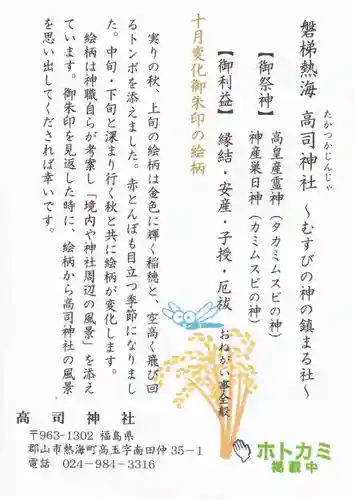 磐梯熱海 高司神社 ～むすびの神の鎮まる社～
たかつかじんじゃ
【御祭神】 高皇産霊神（タカミムスビの神）
神産巣日神（カミムスビの神）
【御利益】 縁結・安産・子授・厄祓
おねがい事全般
十月変化御朱印の絵柄
実りの秋、上旬の絵柄は金色に輝く稲穂と、空高く飛び回
るトンボを添えました。赤とんぼも目立つ季節になりまし
た。中旬・下旬と深まり行く秋と共に絵柄が変化します。
絵柄は神職自らが考案し「境内や神社周辺の風景」を添え
ています。御朱印を見返した時に、絵柄から高司神社の風景
を思い出してくだされば幸いです。
高司神社
〒963-1302 福島県
郡山市熱海町高玉字南田仲35－1
電話 024-984-3316
ホトカミ
掲載中